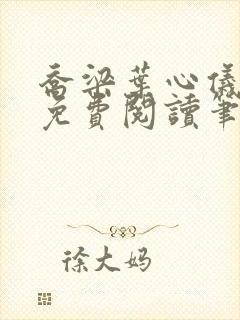 喬梁葉心儀
免費閱讀筆
徐大妈